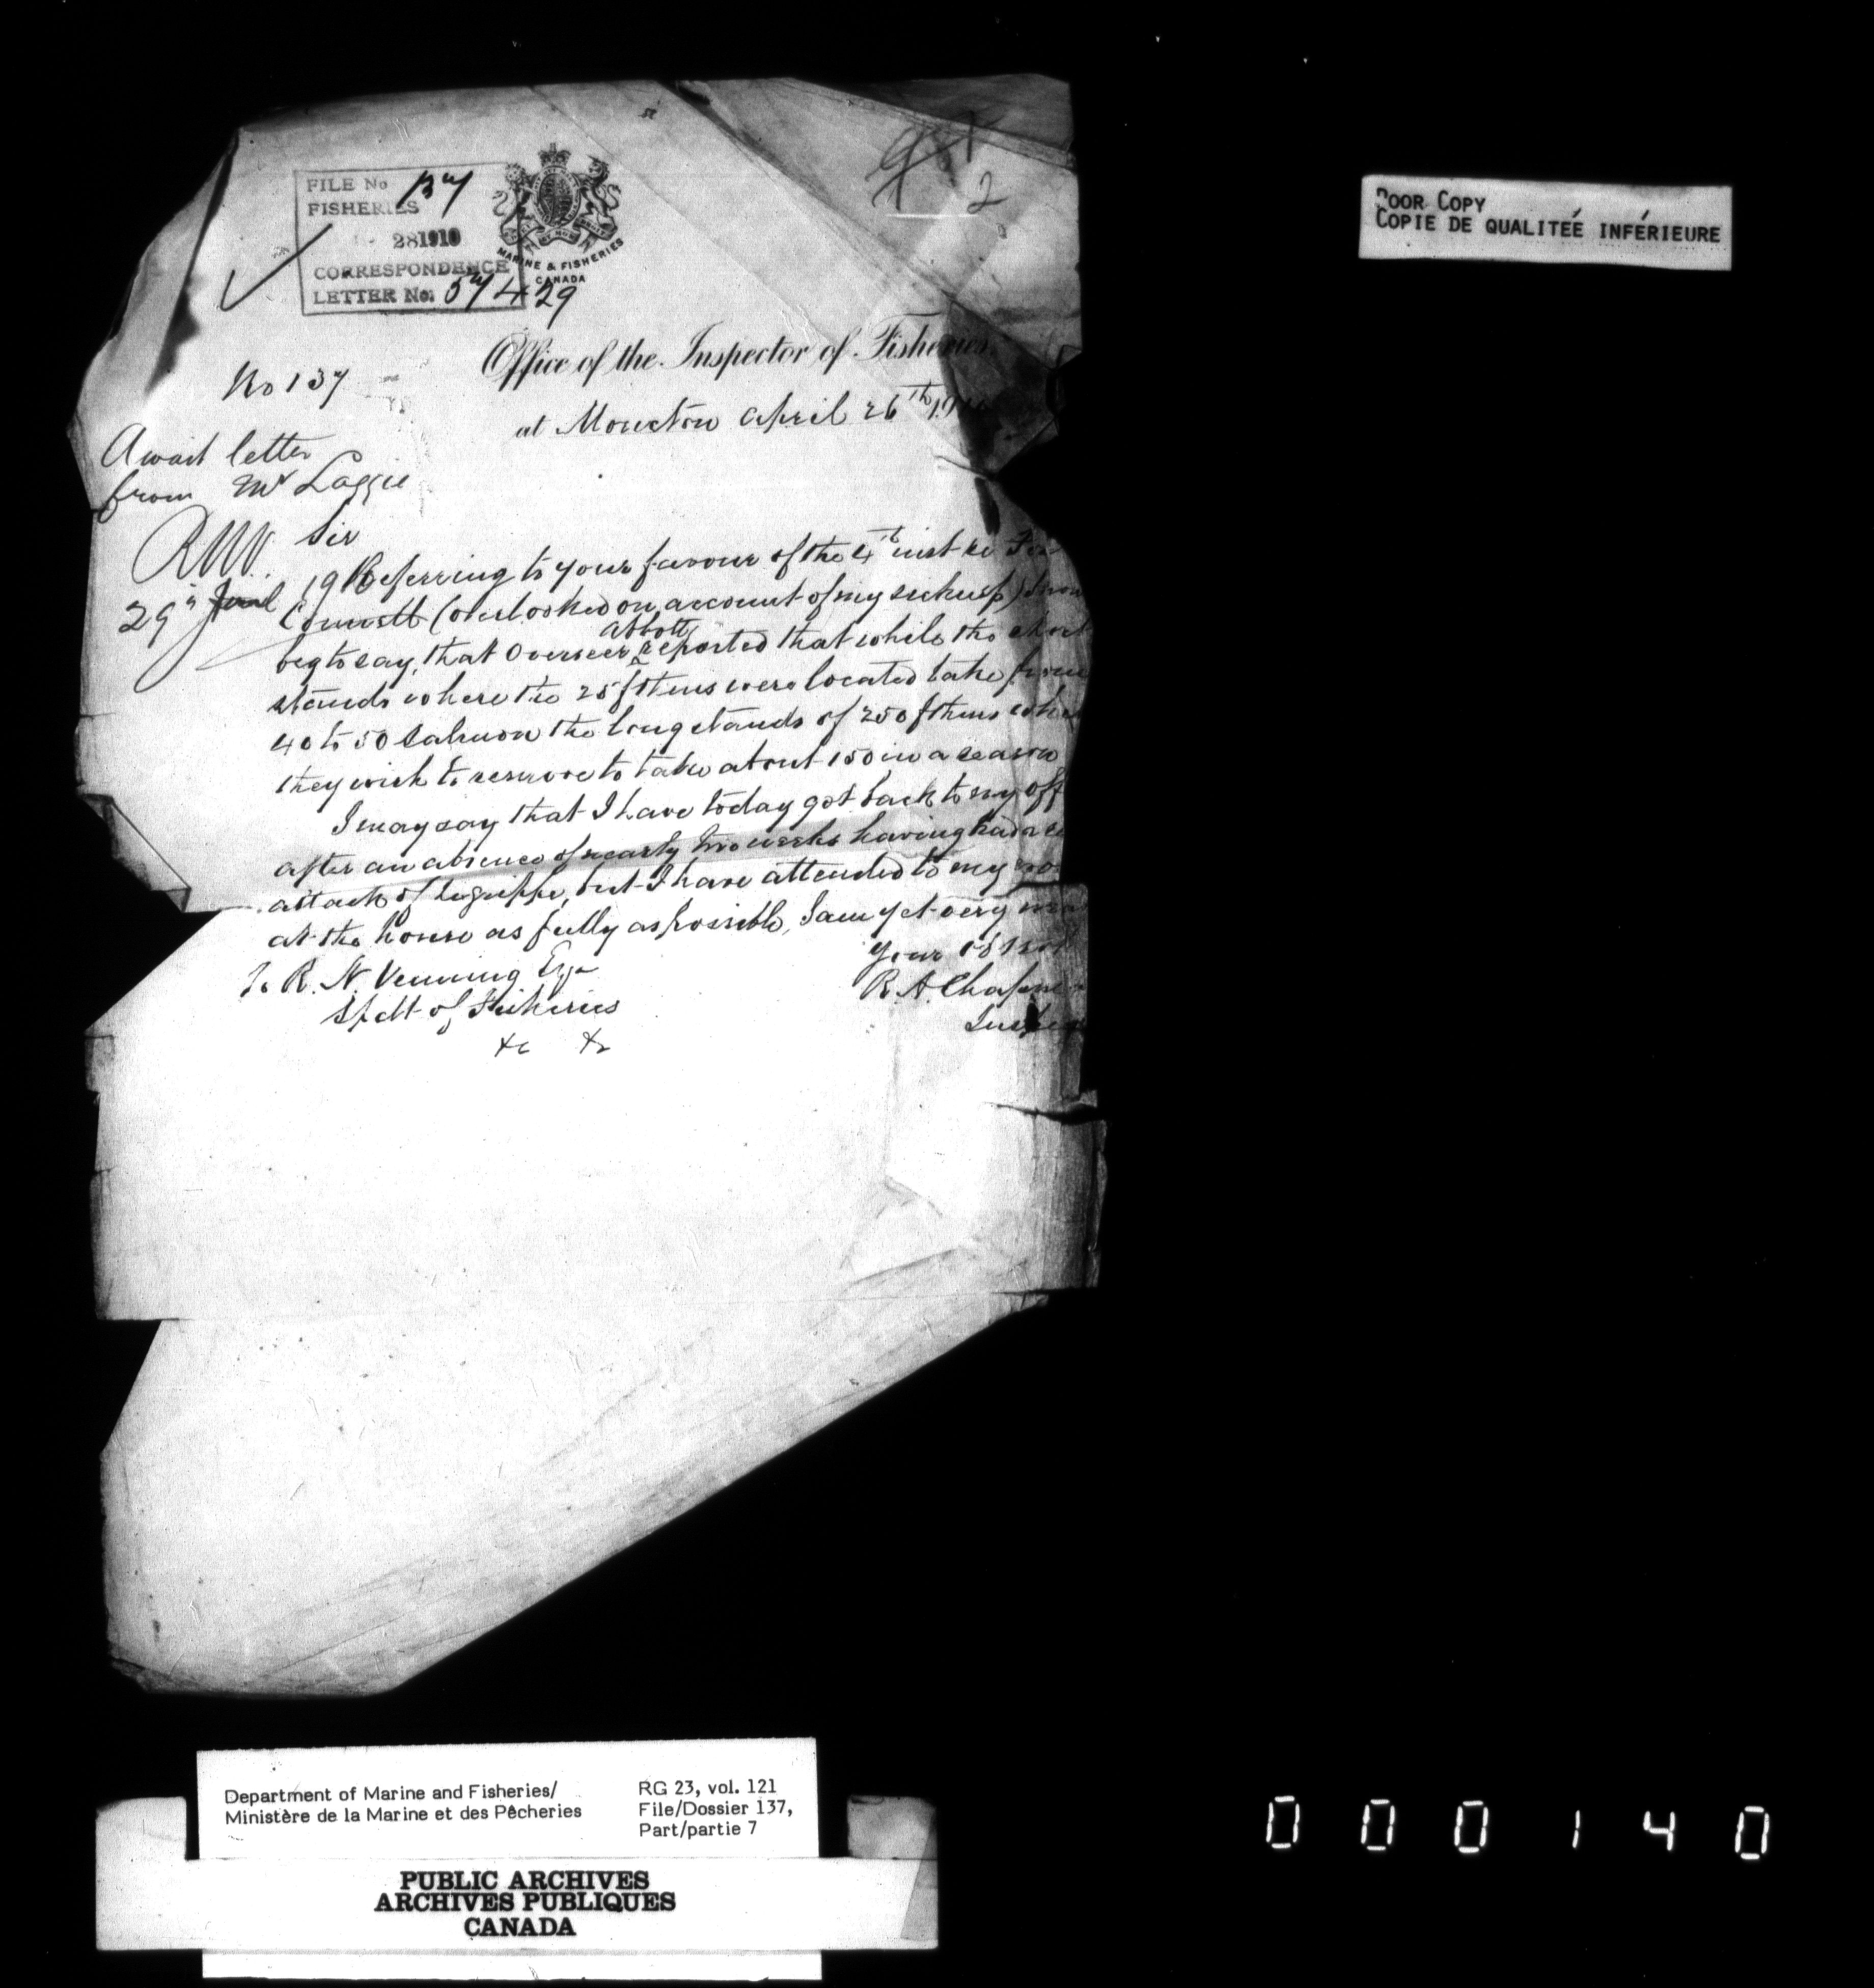 POOR COPY
COPIE DE QUALITEÉ INFÉRIEURE
FILE No 137
FISHERIES
28 1910
CORRESPONDENCE
LETTER No. 57429
MARINE & FISHERIES
CANADA
2
Office of the Inspector of Fisheries.
No 137
at Moncton April 26th 19
Await letter
from Mr Loggie
Sir
Referring to your favour of the 4th inst re
29th 19
(overlooked on account of my sickness)
beg to say, that Overseer Abbott reported that while the short
stands where the 25 fthms were located take from
40 to 50 salmon the long stands of 250 fthms
they wish to reserve to take about 150 in a season
I may say that I have today got back to my off
after an absence of nearly two weeks having had a
attack of lagrippe, but I have attended to my
at the house as fully as possible, I am yet very
Your
To R. N. Venning Esq
R. A. Chapm
Spdt of Fisheries
Inspe
&c &c
Department of Marine and Fisheries/
Ministère de la Marine et des Pêcheries
RG 23, vol. 121
File/Dossier 137,
Part/partie 7
PUBLIC ARCHIVES
ARCHIVES PUBLIQUES
CANADA
000140